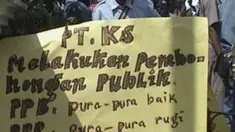 PT. KS
Melakukan Pembo-
hongan Publik.
PPB: pura-pura baik
PPR: pura-pura rugi